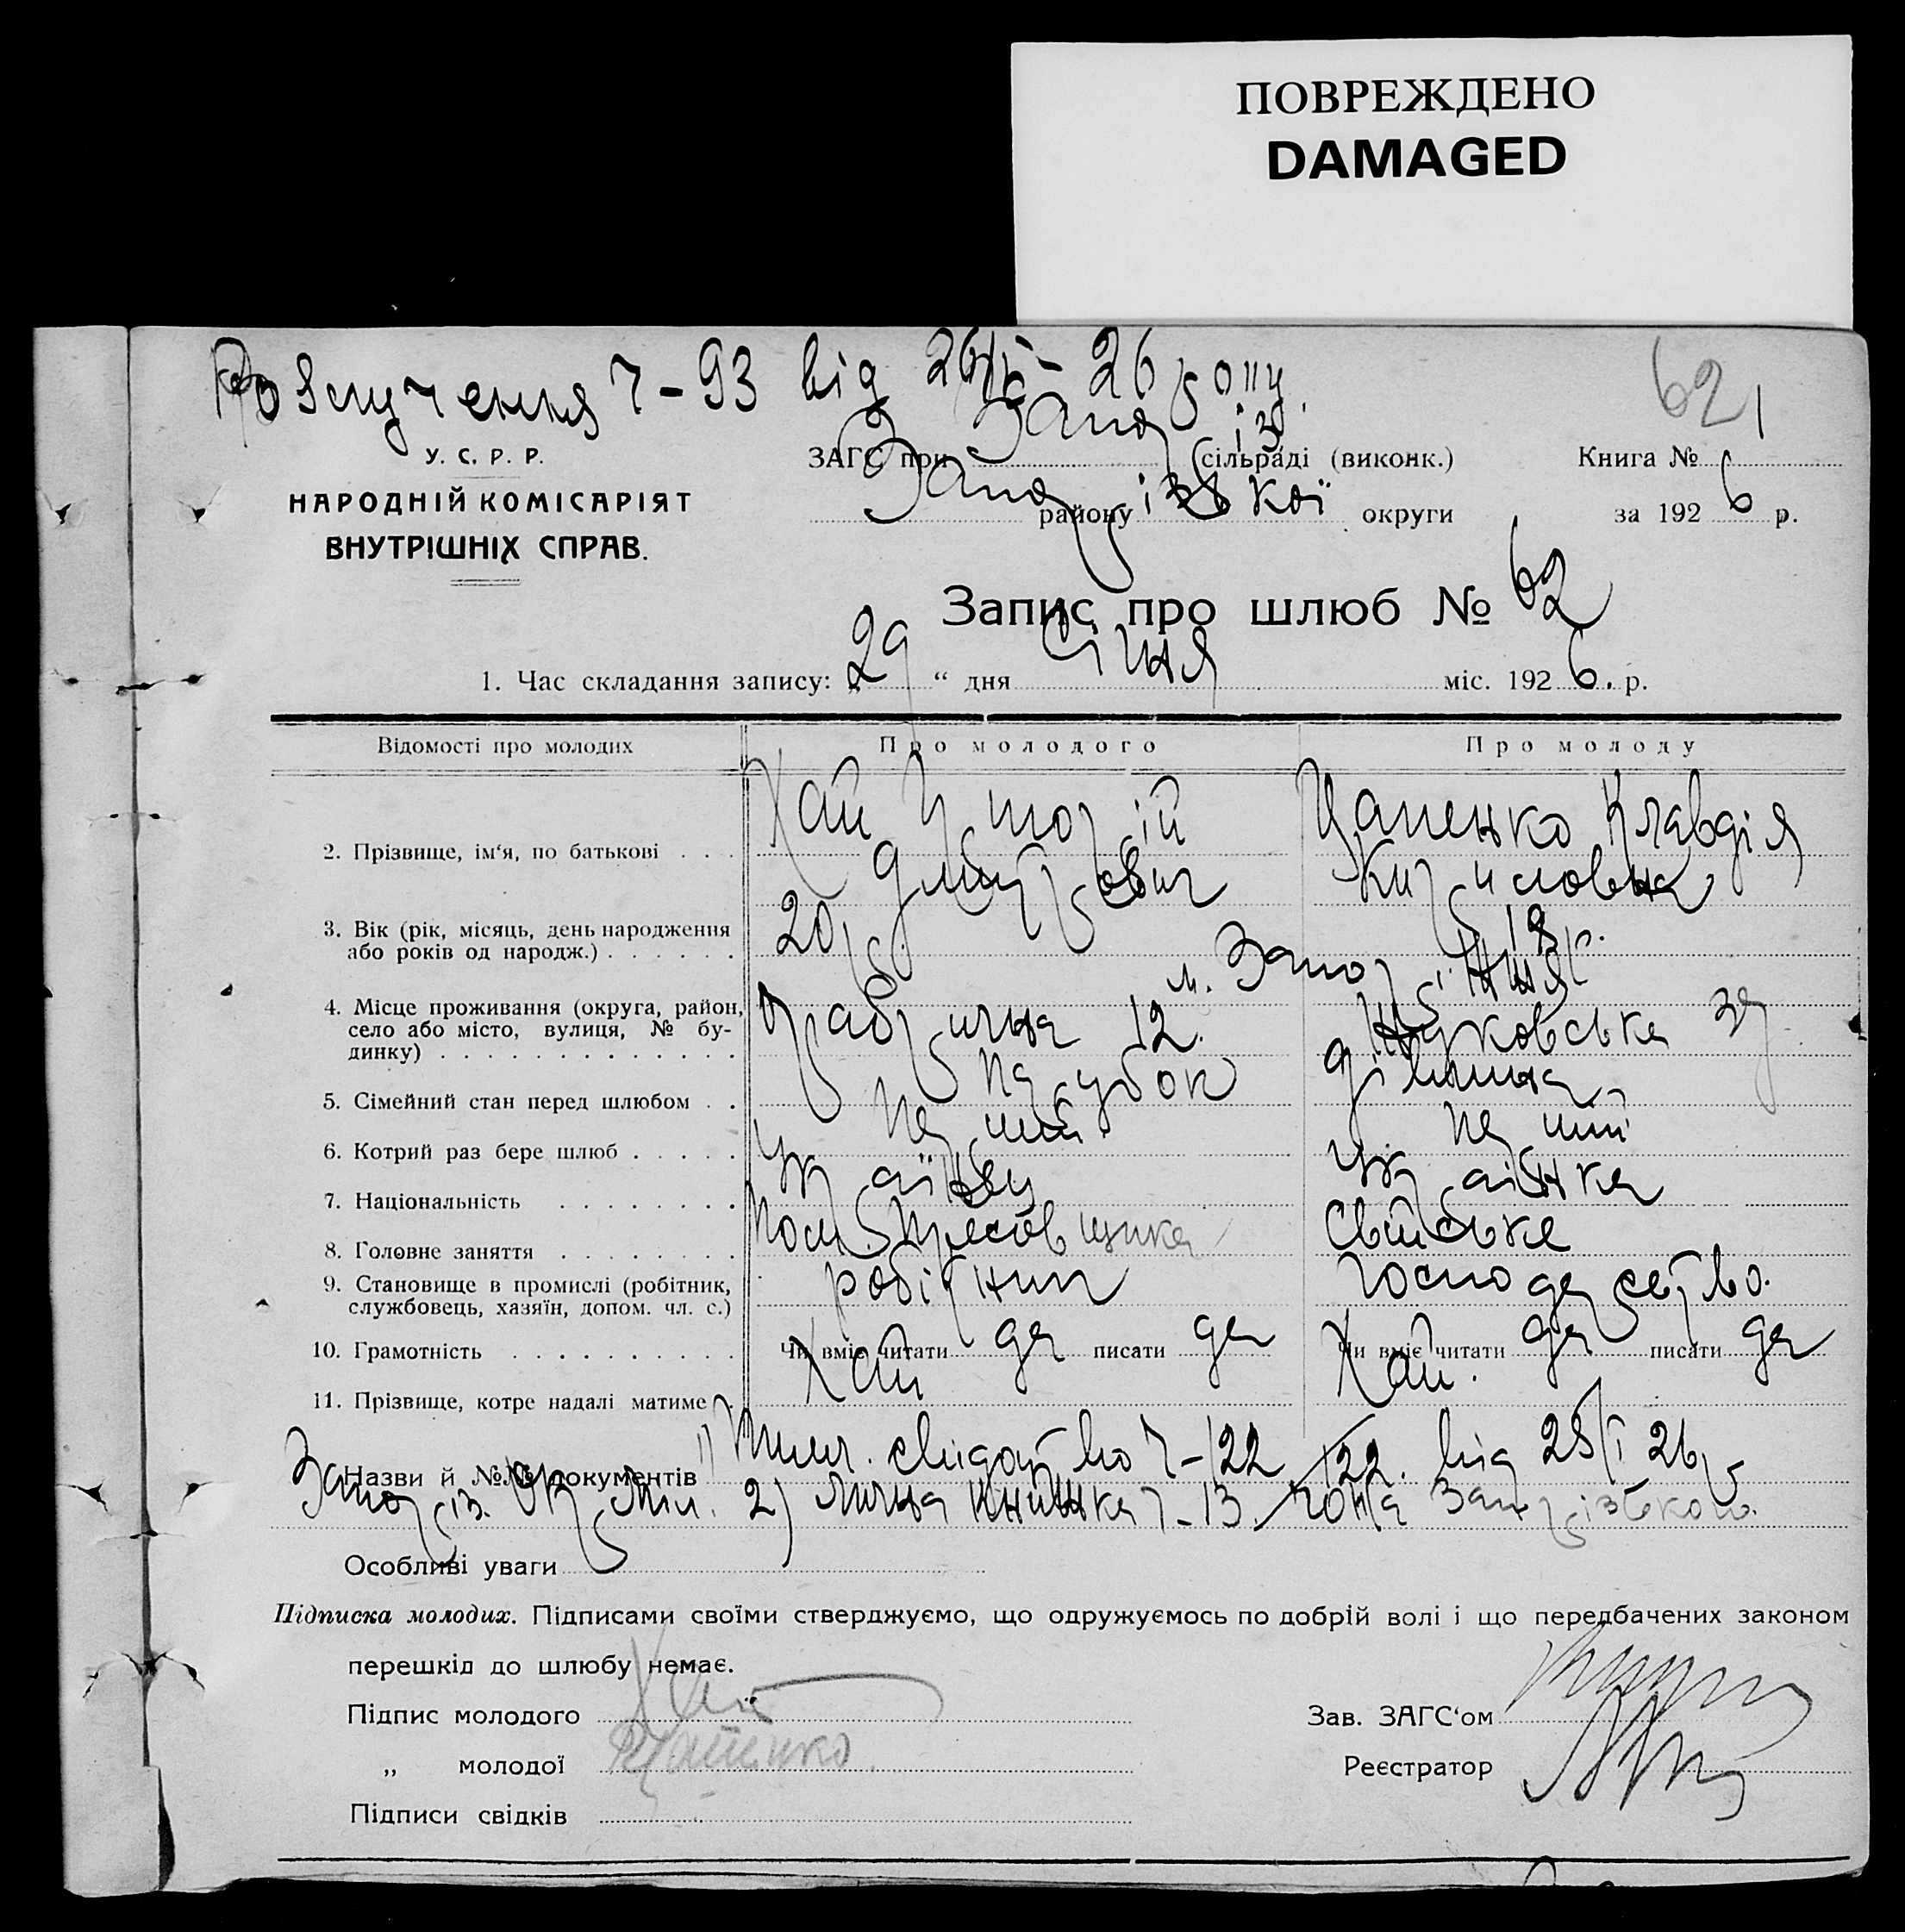 ПОВРЕЖДЕНО
DAMAGED
Розлучення ч-93 від 26/V-26 року.
62
У. С. Р. Р.
НАРОДНІЙ КОМІСАРІЯТ
ВНУТРІШНІХ СПРАВ.
ЗАГС при Запоріз сільраді (виконк.)
Запорізької району округи
Книга №
за 1926 р.
Запис про шлюб № 62
1. Час складання запису: „29“ дня Січня міс. 1926. р.
Відомості про молодих Про молодого Про молоду
2. Прізвище, ім‘я, по батькові . . . Хай Дмитрович Цапенко Клавдія Кириловна
3. Вік (рік, місяць, день народження
або років од народж.) . . . . . . 20 р. 19 р.
4. Місце проживання (округа, район,
село або місто, вулиця, № бу-
динку) . . . . . . . . . . . . . м. Запоріжжя
Фабрична 12. Жуковська
5. Сімейний стан перед шлюбом . . Парубок дівчина
6. Котрий раз бере шлюб . . . . . Перший Перший
7. Національність . . . . . . . Українец Українка
8. Головне заняття . . . . . . . Пом. Пресовщика Свійське
9. Становище в промислі (робітник,
службовець, хазяїн, допом. чл. с.) робітник господарство.
10. Грамотність . . . . . . . . . . Чи вміє читати да писати да Чи вміє читати да писати да
11. Прізвище, котре надалі матиме . Хай Хай.
Назви й №№ документів 1) Тимч. свідоцтво ч-122 122. від 28/I 26 р.
Запоріз. Окр Міл. 2) Лична книжка ч-13.
Особливі уваги
Підписка молодих. Підписами своїми стверджуємо, що одружуємось по добрій волі і що передбачених законом
перешкід до шлюбу немає.
Підпис молодого Хай
Зав. ЗАГС‘ом
„ молодої Цапенко
Реєстратор
Підписи свідків